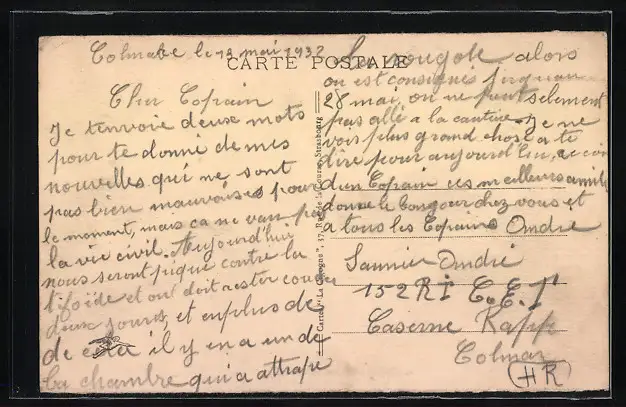 Colmar le 13 mai 1932
CARTE POSTALE
Cher Copain
Je t'envoie deux mots
pour te donné de mes
nouvelles qui ne sont
pas bien mauvaises pour
le moment, mais ca ne vau pas
la vie civil. Aujourd'hui
nous seront piqué contre la
tifoïde et on doit rester coucer
deux jours, et en plus de
de cela il y en a un de
la chambre qui a attrapé
la alors
on est consignés jusquau
28 mai, on ne peut selement
pas allé a la cantine. Je ne
vois plus grand chose a te
dire pour aujourd'hui,
d'un Copain ces meilleurs amitié
donne le bonjour chez vous et
a tous les Copains André
Saunier André
152 RI C.E.T
Caserne Rapp
Colmar
(HR)
Cartes "La Cigogne", 37, Rue de la Course, Strasbourg